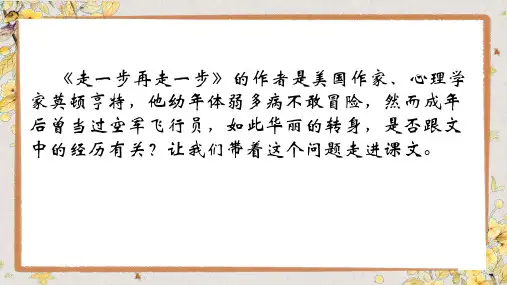 《走一步再走一步》的作者是美国作家、心理学
家莫顿亨特，他幼年体弱多病不敢冒险，然而成年
后曾当过空军飞行员，如此华丽的转身，是否跟文
中的经历有关？让我们带着这个问题走进课文。